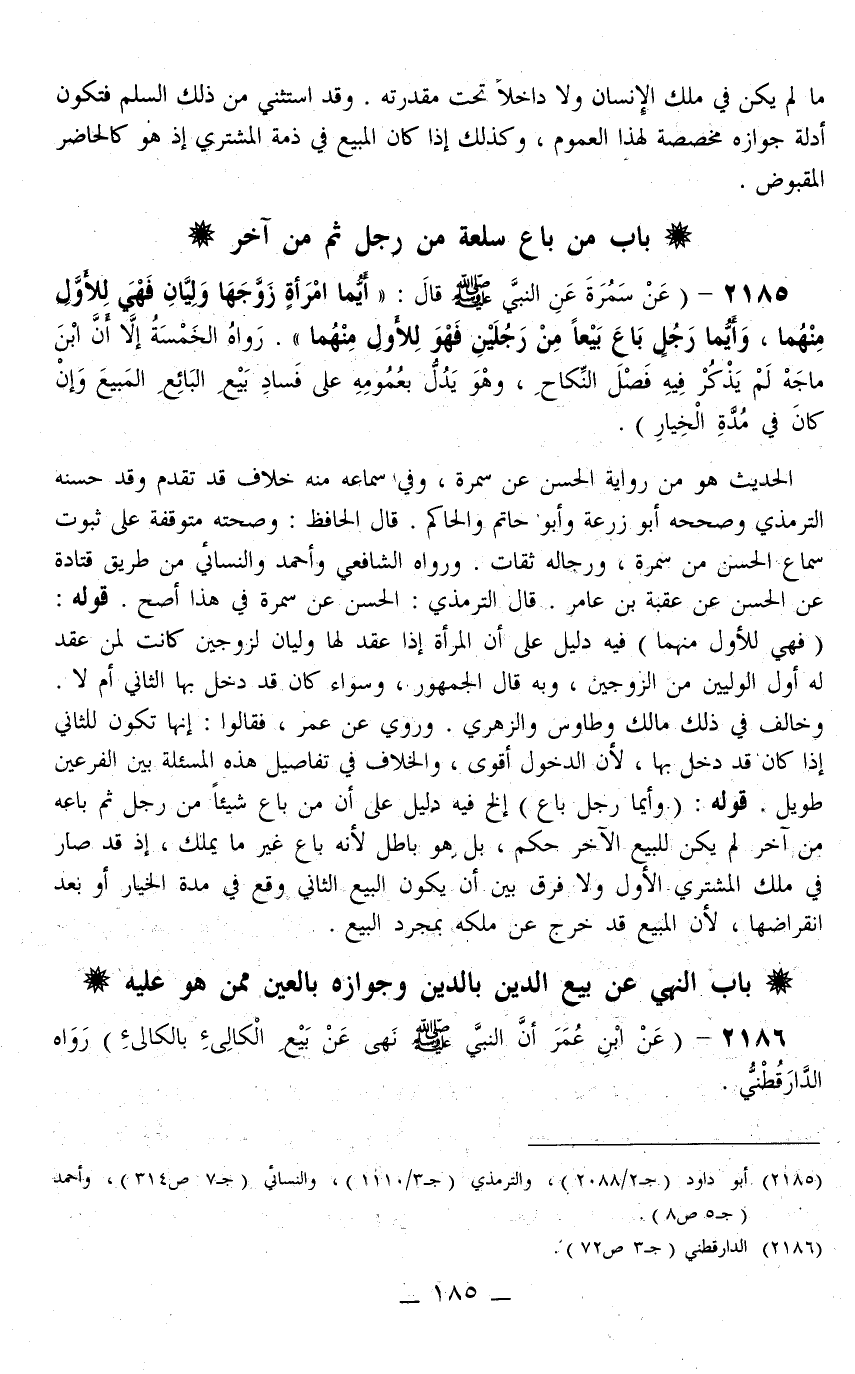 ما لم يكن في ملك الإنسان ولا داخلاً تحت مقدرته . وقد استثني من ذلك السلم فتكون
أدلة جوازه مخصصة لهذا العموم ، وكذلك إذا كان المبيع في ذمة المشتري إذ هو كالحاضر
المقبوض .
باب من باع سلعة من رجل ثم من آخر
٢١٨٥ – ( عَنْ سَمُرَةَ عَنِ النبيَّ ﷺ قالَ : « أَيُّما امْرَأةٍ زَوَّجَهَا وَلِيَّانِ فَهْيَ لِلأَوَّلِ
مِنْهُما ، وَأَيُّما رَجُلٍ بَاعَ بَيْعاً مِنْ رَجُلَيْنِ فَهْوَ لِلأَولِ مِنْهُما » . رَواهُ الخَمْسَةُ إلَّا أنَّ ابْنَ
ماجَهْ لَمْ يَذْكُرْ فِيهِ فَصْلَ النِّكاحِ ، وهْوَ يَدُلُّ بعُمُومِهِ على فَسادِ بَيْعِ البَائِعِ المَبيعَ وَإنْ
كانَ في مُدَّةِ الْخِيارِ ) .
الحديث هو من رواية الحسن عن سمرة ، وفي سماعه منه خلاف قد تقدم وقد حسنه
الترمذي وصححه أبو زرعة وأبو حاتم والحاكم . قال الحافظ : وصحته متوقفة على ثبوت
سماع الحسن من سمرة ، ورجاله ثقات . ورواه الشافعي وأحمد والنسائي من طريق قتادة
عن الحسن عن عقبة بن عامر . قال الترمذي : الحسن عن سمرة في هذا أصح . قوله :
( فهي للأول منهما ) فيه دليل على أن المرأة إذا عقد لها وليان لزوجين كانت لمن عقد
له أول الوليين من الزوجين ، وبه قال الجمهور ، وسواء كان قد دخل بها الثاني أم لا .
وخالف في ذلك مالك وطاوس والزهري . وروي عن عمر ، فقالوا : إنها تكون للثاني
إذا كان قد دخل بها ، لأن الدخول أقوى ، والخلاف في تفاصيل هذه المسئلة بين الفرعين
طويل . قوله : ( وأيما رجل باع ) إلخ فيه دليل على أن من باع شيئاً من رجل ثم باعه
من آخر لم يكن للبيع الآخر حكم ، بل هو باطل لأنه باع غير ما يملك ، إذ قد صار
في ملك المشتري الأول ولا فرق بين أن يكون البيع الثاني وقع في مدة الخيار أو بعد
انقراضها ، لأن المبيع قد خرج عن ملكه بمجرد البيع .
باب النهي عن بيع الدين بالدين وجوازه بالعين ممن هو عليه
٢١٨٦ – ( عَنْ ابْنِ عُمَرَ أنَّ النبيَّ ﷺ نَهى عَنْ بَيْعِ الْكالِىءِ بالكالىءِ ) رَوَاه
الدَّارَقُطْنيُّ .
(٢١٨٥) أبو داود ( جـ٢٠٨٨/٢ ) ، والترمذي ( جـ١١١٠/٣ ) ، والنسائي ( جـ٧ ص٣١٤ ) ، وأحمد
( جـ٥ ص٨ ) .
(٢١٨٦) الدارقطني ( جـ٣ ص٧٢ ) .
– ١٨٥ –